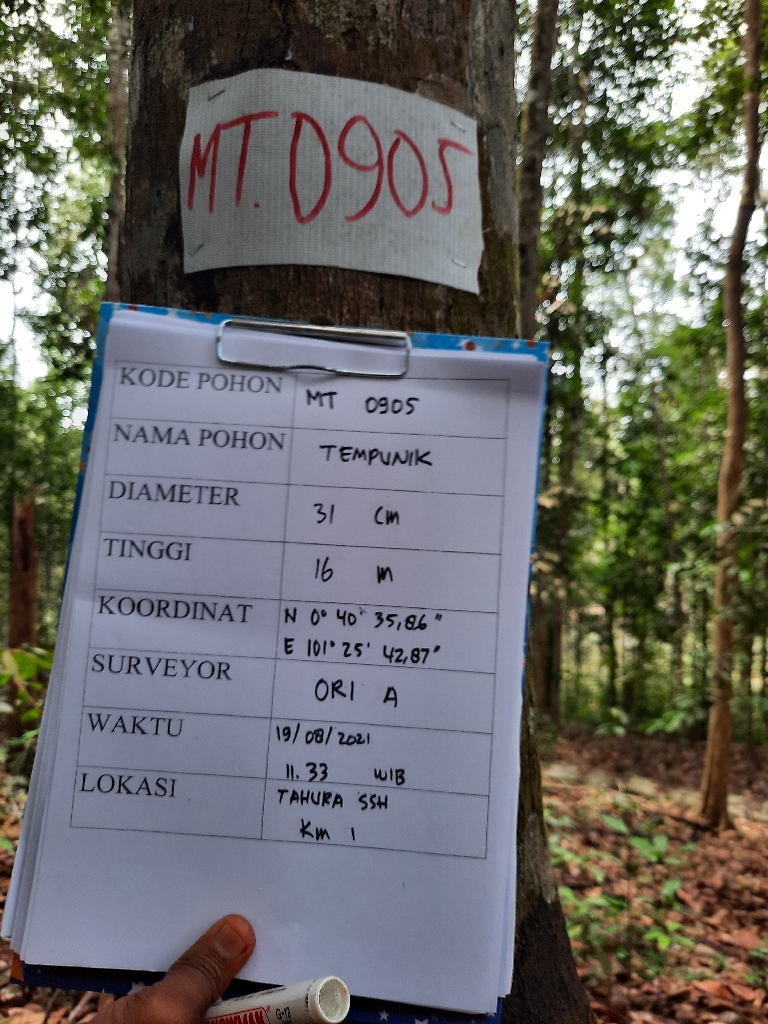 MT. 0905
KODE POHON MT 0905
NAMA POHON TEMPUNIK
DIAMETER 31 cm
TINGGI 16 m
KOORDINAT N 0° 40' 35,86"
E 101° 25' 42,87"
SURVEYOR ORI A
WAKTU 19/08/2021
11.33 WIB
LOKASI TAHURA SSH
Km 1
SNOWMAN G-12